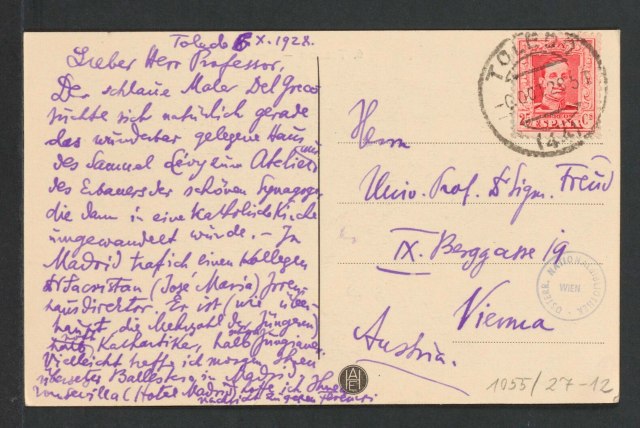 Toledo 6 X. 1928.
Lieber Herr Professor,
Der schlaue Maler Del Greco
suchte sich natürlich gerade
das wunderbar gelegene Haus
des Samuel Lévy zum Atelier aus
des Erbauers der schönen Synagoge,
die dann in eine katholische Kirche
umgewandelt wurde. – In
Madrid traf ich einen Kollegen
Sacristan (José Maria) Irren-
hausdirektor. Er ist (wie über-
haupt die Mehrzahl der Jüngeren)
halb Kathartiker, halb Jungianer.
Vielleicht treffe ich morgen Ihren
Übersetzer Ballesteros in Madrid.
In Sevilla (Hotel Madrid) hoffe ich Ihre
Nachricht zu Ferenczi
TOLEDO
ESPAÑA
25 Cs
Herrn
Univ. Prof. Dr Sigm. Freud
IX. Berggasse 19
Vienna
Austria.
ÖSTERR. NATIONALBIBLIOTHEK
WIEN
1055/27-12